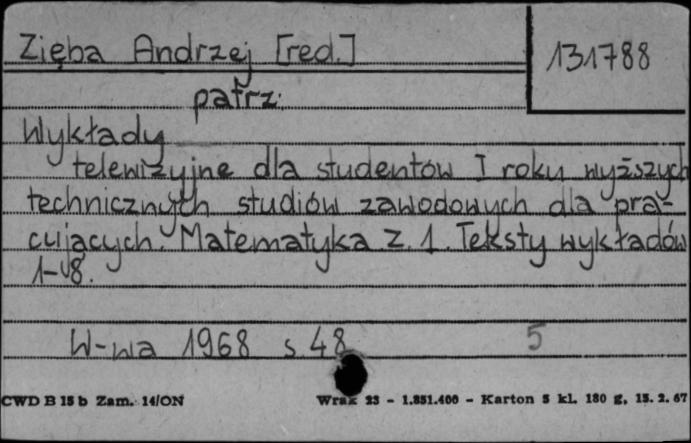 Zięba Andrzej [red.]
131788
patrz:
Wykłady
telewizyjne dla studentów I roku wyższych
technicznych studiów zawodowych dla pra-
cujących. Matematyka z. 1. Teksty wykładów
1-8.
W-wa 1968 s. 48
5
CWD B 15 b Zam. 14/ON
Wrak 23 - 1.851.400 - Karton 5 kl. 180 g, 15. 2. 67